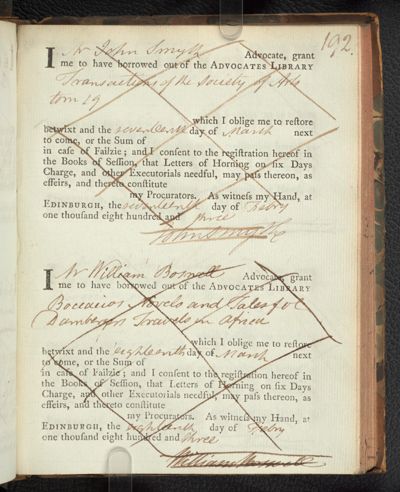 192.
I Mr John Smyth Advocate, grant
me to have borrowed out of the ADVOCATES LIBRARY
Transactions of the Society of Arts
tom 19
which I oblige me to restore
betwixt and the seventeenth day of March next
to come, or the Sum of
in case of Failzie; and I consent to the registration hereof in
the Books of Session, that Letters of Horning on six Days
Charge, and other Executorials needful, may pass thereon, as
effeirs, and thereto constitute
my Procurators. As witness my Hand, at
EDINBURGH, the seventeenth day of Febry
one thousand eight hundred and three
John Smyth
I Mr William Boswell Advocate, grant
me to have borrowed out of the ADVOCATES LIBRARY
Boccacios Novels and Tales fol
Dambergers Travels in Africa
which I oblige me to restore
betwixt and the eighteenth day of March next
to come, or the Sum of
in case of Failzie; and I consent to the registration hereof in
the Books of Session, that Letters of Horning on six Days
Charge, and other Executorials needful, may pass thereon, as
effeirs, and thereto constitute
my Procurators. As witness my Hand, at
EDINBURGH, the eighteenth day of Febry
one thousand eight hundred and three
William Boswell